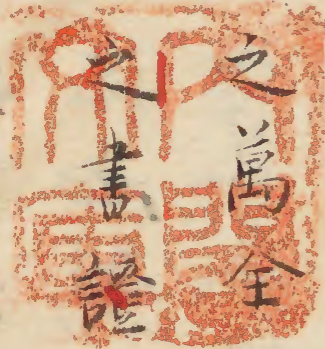 之萬全
之書證